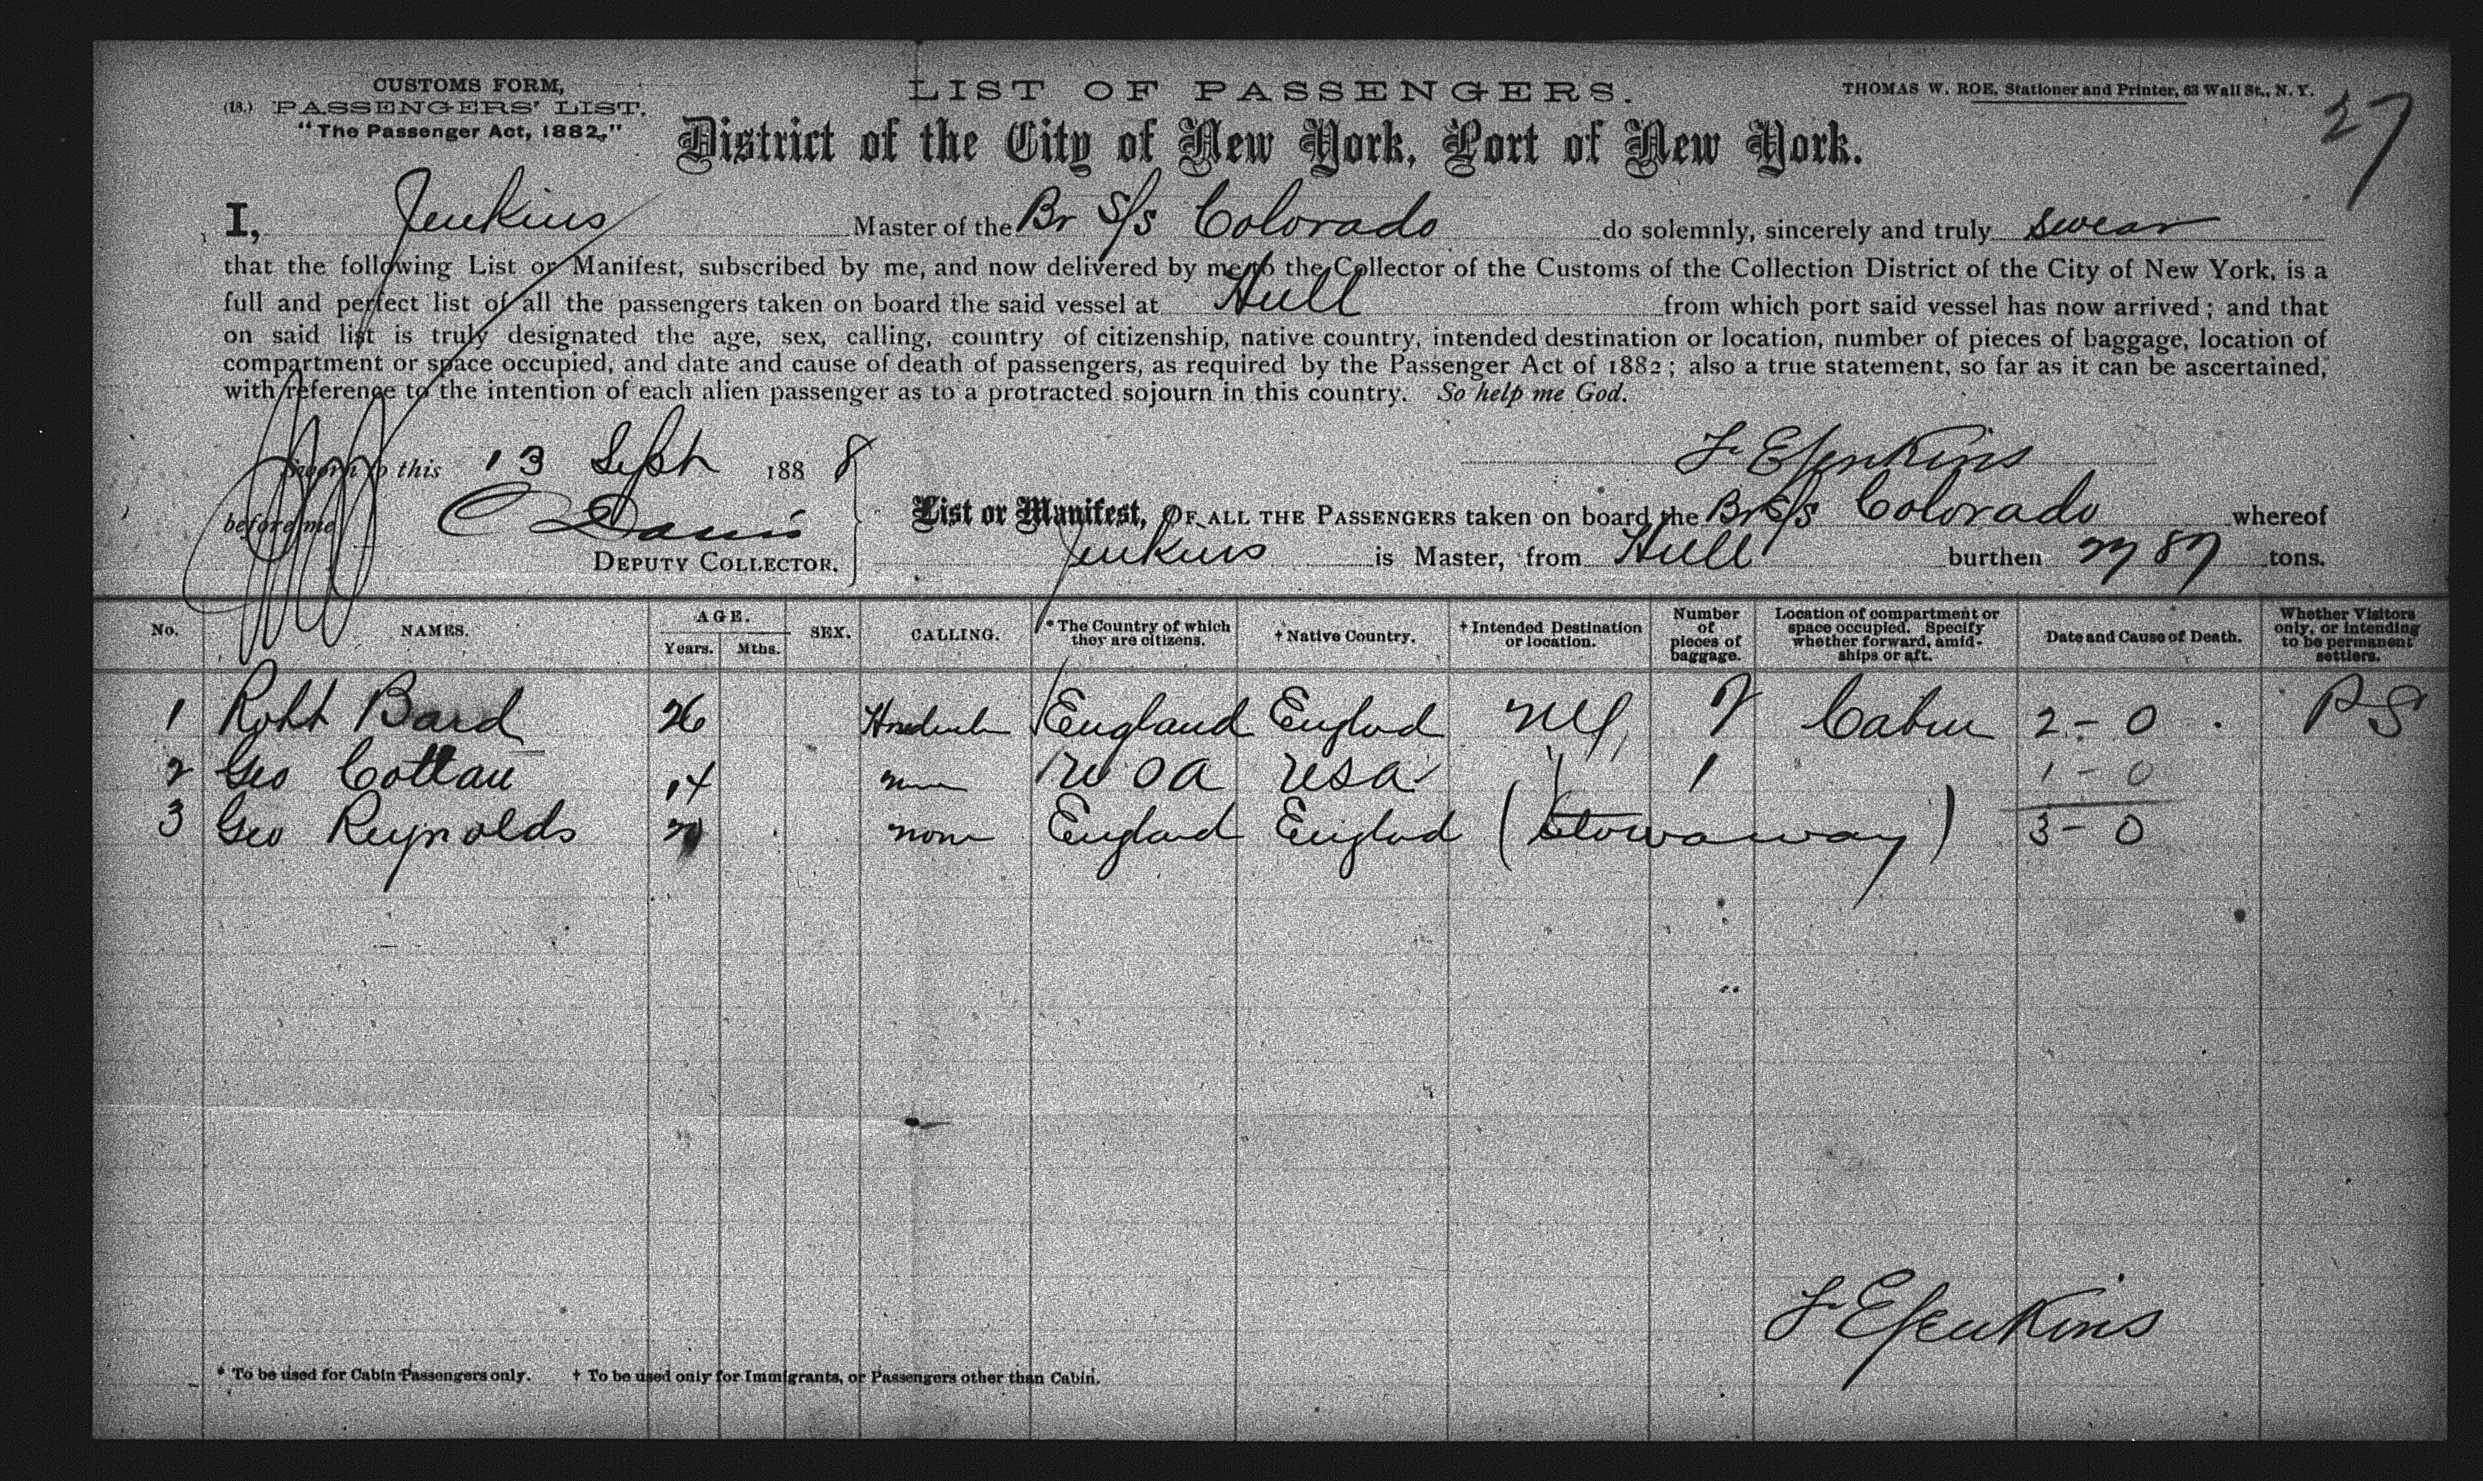 CUSTOMS FORM,
(18.) PASSENGERS' LIST.
"The Passenger Act, 1882."
LIST OF PASSENGERS.
THOMAS W. ROE, Stationer and Printer, 63 Wall St., N. Y.
27
District of the City of New York, Port of New York.
I, Jenkins Master of the Br S/S Colorado do solemnly, sincerely and truly swear
that the following List or Manifest, subscribed by me, and now delivered by me to the Collector of the Customs of the Collection District of the City of New York, is a
full and perfect list of all the passengers taken on board the said vessel at Hull from which port said vessel has now arrived; and that
on said list is truly designated the age, sex, calling, country of citizenship, native country, intended destination or location, number of pieces of baggage, location of
compartment or space occupied, and date and cause of death of passengers, as required by the Passenger Act of 1882; also a true statement, so far as it can be ascertained,
with reference to the intention of each alien passenger as to a protracted sojourn in this country. So help me God.
Sworn to this 13 Sept 1888
F E Jenkins
before me C Davis
DEPUTY COLLECTOR.
List or Manifest, OF ALL THE PASSENGERS taken on board the Br S/S Colorado whereof
Jenkins is Master, from Hull burthen 2787 tons.
No. NAMES. AGE. Years. Mths. SEX. CALLING. * The Country of which they are citizens. † Native Country. † Intended Destination or location. Number of pieces of baggage. Location of compartment or space occupied. Specify whether forward, amidships or aft. Date and Cause of Death. Whether Visitors only, or intending to be permanent settlers.
1 Robt Bard 26 England England NY 2 Cabin 2 - 0 PS
2 Geo 14 USA USA 1 1 - 0
3 Geo Reynolds none England England (Stowaway) 3 - 0
F E Jenkins
* To be used for Cabin Passengers only. † To be used only for Immigrants, or Passengers other than Cabin.